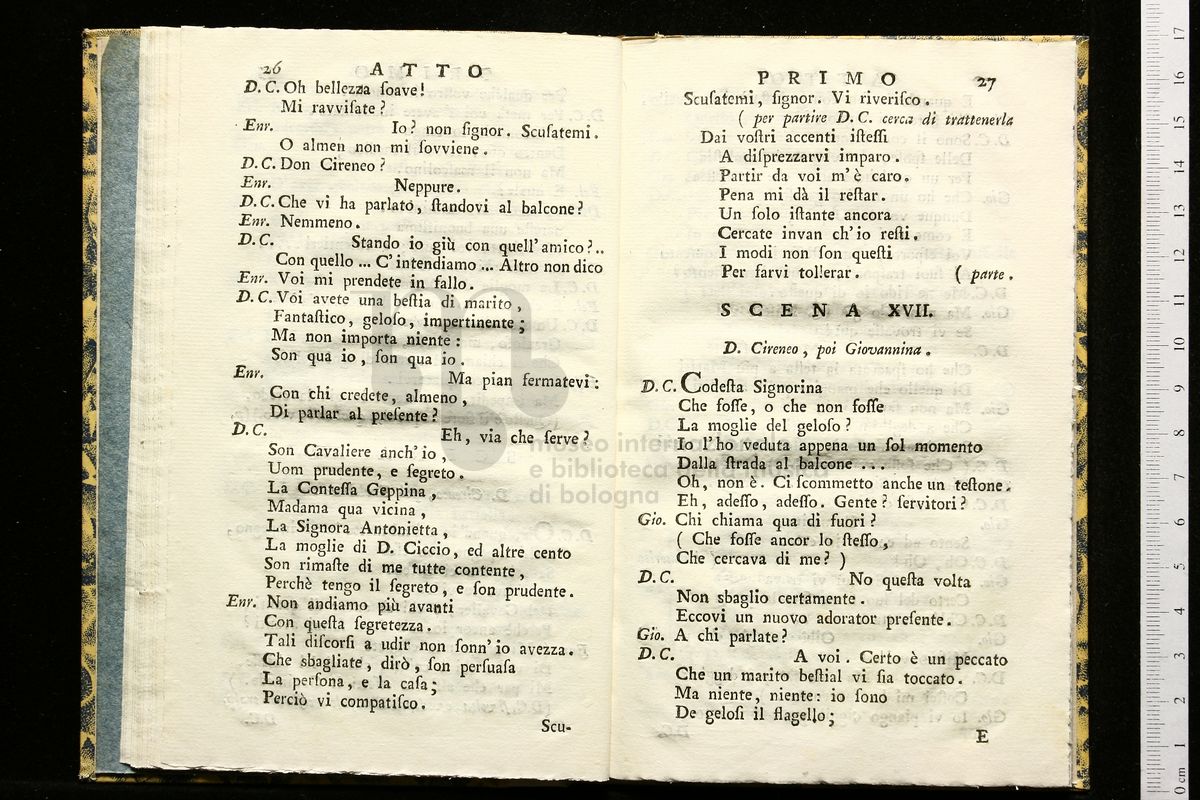 26 ATTO
D. C. Oh bellezza ſoave!
Mi ravviſate?
Enr. Io? non ſignor. Scuſatemi.
O almen non mi ſovviene.
D. C. Don Cireneo?
Enr. Neppure.
D. C. Che vi ha parlato, ſtandovi al balcone?
Enr. Nemmeno.
D. C. Stando io giù con quell'amico?..
Con quello ... C'intendiamo ... Altro non dico
Enr. Voi mi prendete in fallo.
D. C. Voi avete una beſtia di marito,
Fantaſtico, geloſo, impertinente;
Ma non importa niente:
Son qua io, ſon qua io.
Enr. Ma pian fermatevi:
Con chi credete, almeno,
Di parlar al preſente?
D. C. Eh, via che ſerve?
Son Cavaliere anch'io,
Uom prudente, e ſegreto.
La Conteſſa Geppina,
Madama qua vicina,
La Signora Antonietta,
La moglie di D. Ciccio, ed altre cento
Son rimaſte di me tutte contente,
Perchè tengo il ſegreto, e ſon prudente.
Enr. Non andiamo più avanti
Con queſta ſegretezza.
Tali diſcorſi a udir non ſonn'io avezza.
Che sbagliate, dirò, ſon perſuaſa
La perſona, e la caſa;
Perciò vi compatiſco.
Scu-
PRIMO 27
Scuſatemi, ſignor. Vi riveriſco.
( per partire D. C. cerca di trattenerla
Dai voſtri accenti iſteſſi
A diſprezzarvi imparo.
Partir da voi m'è caro.
Pena mi dà il reſtar.
Un ſolo iſtante ancora
Cercate invan ch'io reſti.
I modi non ſon queſti
Per farvi tollerar. ( parte.
SCENA XVII.
D. Cireneo, poi Giovannina.
D. C. Codeſta Signorina
Che foſſe, o che non foſſe
La moglie del geloſo?
Io l'ho veduta appena un ſol momento
Dalla ſtrada al balcone ...
Oh, non è. Ci ſcommetto anche un teſtone.
Eh, adeſſo, adeſſo. Gente? ſervitori?
Gio. Chi chiama qua di fuori?
( Che foſſe ancor lo ſteſſo,
Che cercava di me? )
D. C. No queſta volta
Non sbaglio certamente.
Eccovi un nuovo adorator preſente.
Gio. A chi parlate?
D. C. A voi. Certo è un peccato
Che un marito beſtial vi ſia toccato.
Ma niente, niente: io ſono
De geloſi il flagello;
E
museo internazionale
e biblioteca della musica
di bologna
0 cm 1 2 3 4 5 6 7 8 9 10 11 12 13 14 15 16 17